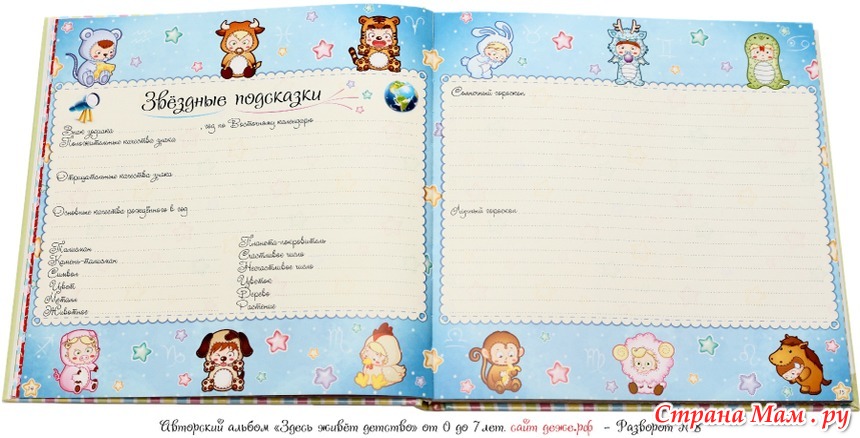 Звёздные подсказки
Знак зодиака , год по Восточному календарю
Положительные качества знака
Отрицательные качества знака
Основные качества рождённого в год
Талисман
Камень-талисман
Символ
Цвет
Металл
Животное
Планета-покровитель
Счастливое число
Несчастливое число
Цветок
Дерево
Растение
Солнечный гороскоп
Лунный гороскоп
Авторский альбом «Здесь живёт детство» от 0 до 7 лет. сайт деже.рф - Разворот
Страна Мам.ру